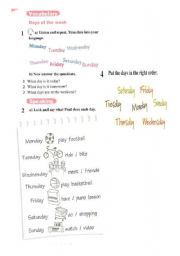 Vocabulary
Days of the week
1 a) Listen and repeat. Translate into your
language.
Monday Tuesday Wednesday
Thursday Friday Saturday Sunday
b) Now answer the questions.
1 What day is it today?
2 What day is it tomorrow?
3 What days are on the weekend?
4 Put the days in the right order.
Saturday Friday
Tuesday Monday Sunday
Thursday Wednesday
Speaking
2 a) Look and say what Paul does each day.
Monday play football
Tuesday ride / bike
Wednesday meet / friends
Thursday play basketball
Friday have / piano lesson
Saturday go / shopping
Sunday watch / video